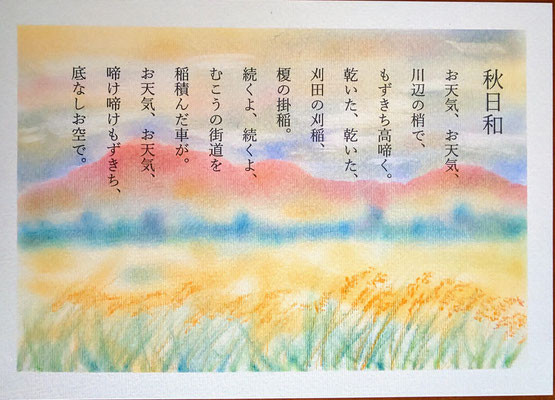 秋日和
お天気、お天気、
川辺の梢で、
もずきち高啼く。
乾いた、乾いた、
刈田の刈稲、
榎の掛稲。
続くよ、続くよ、
むこうの街道を
稲積んだ車が。
お天気、お天気、
啼け啼けもずきち、
底なしお空で。